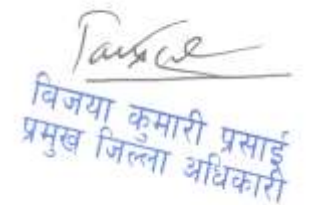 विजया कुमारी प्रसाईं
प्रमुख जिल्ला अधिकारी